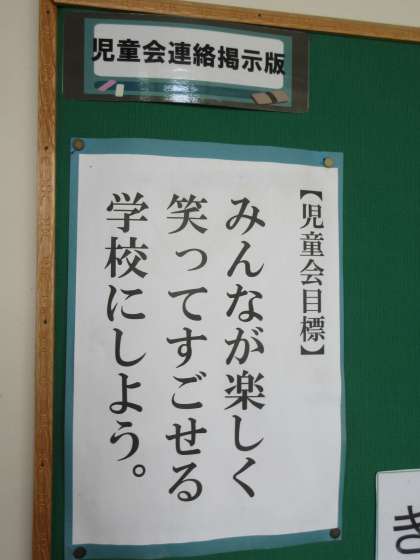 児童会連絡掲示版
【児童会目標】
みんなが楽しく
笑ってすごせる
学校にしよう。
き